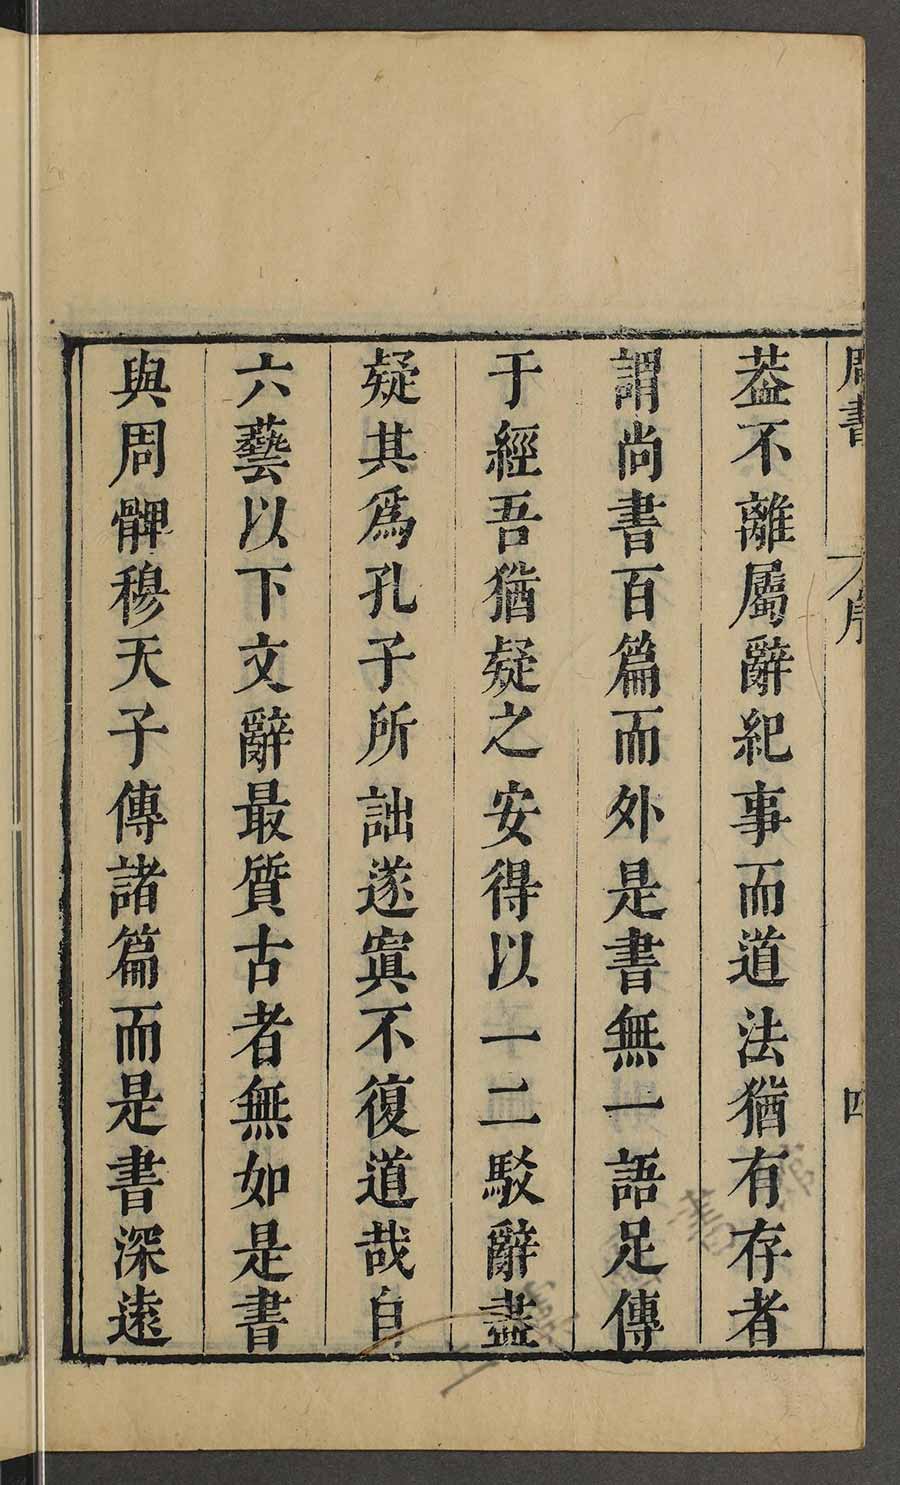 周書
序
四
蓋不離屬辭紀事而道法猶有存者
謂尚書百篇而外是書無一語足傳
于經吾猶疑之安得以一二駁辭盡
疑其為孔子所詘遂寘不復道哉自
六藝以下文辭最質古者無如是書
與周髀穆天子傳諸篇而是書深遠